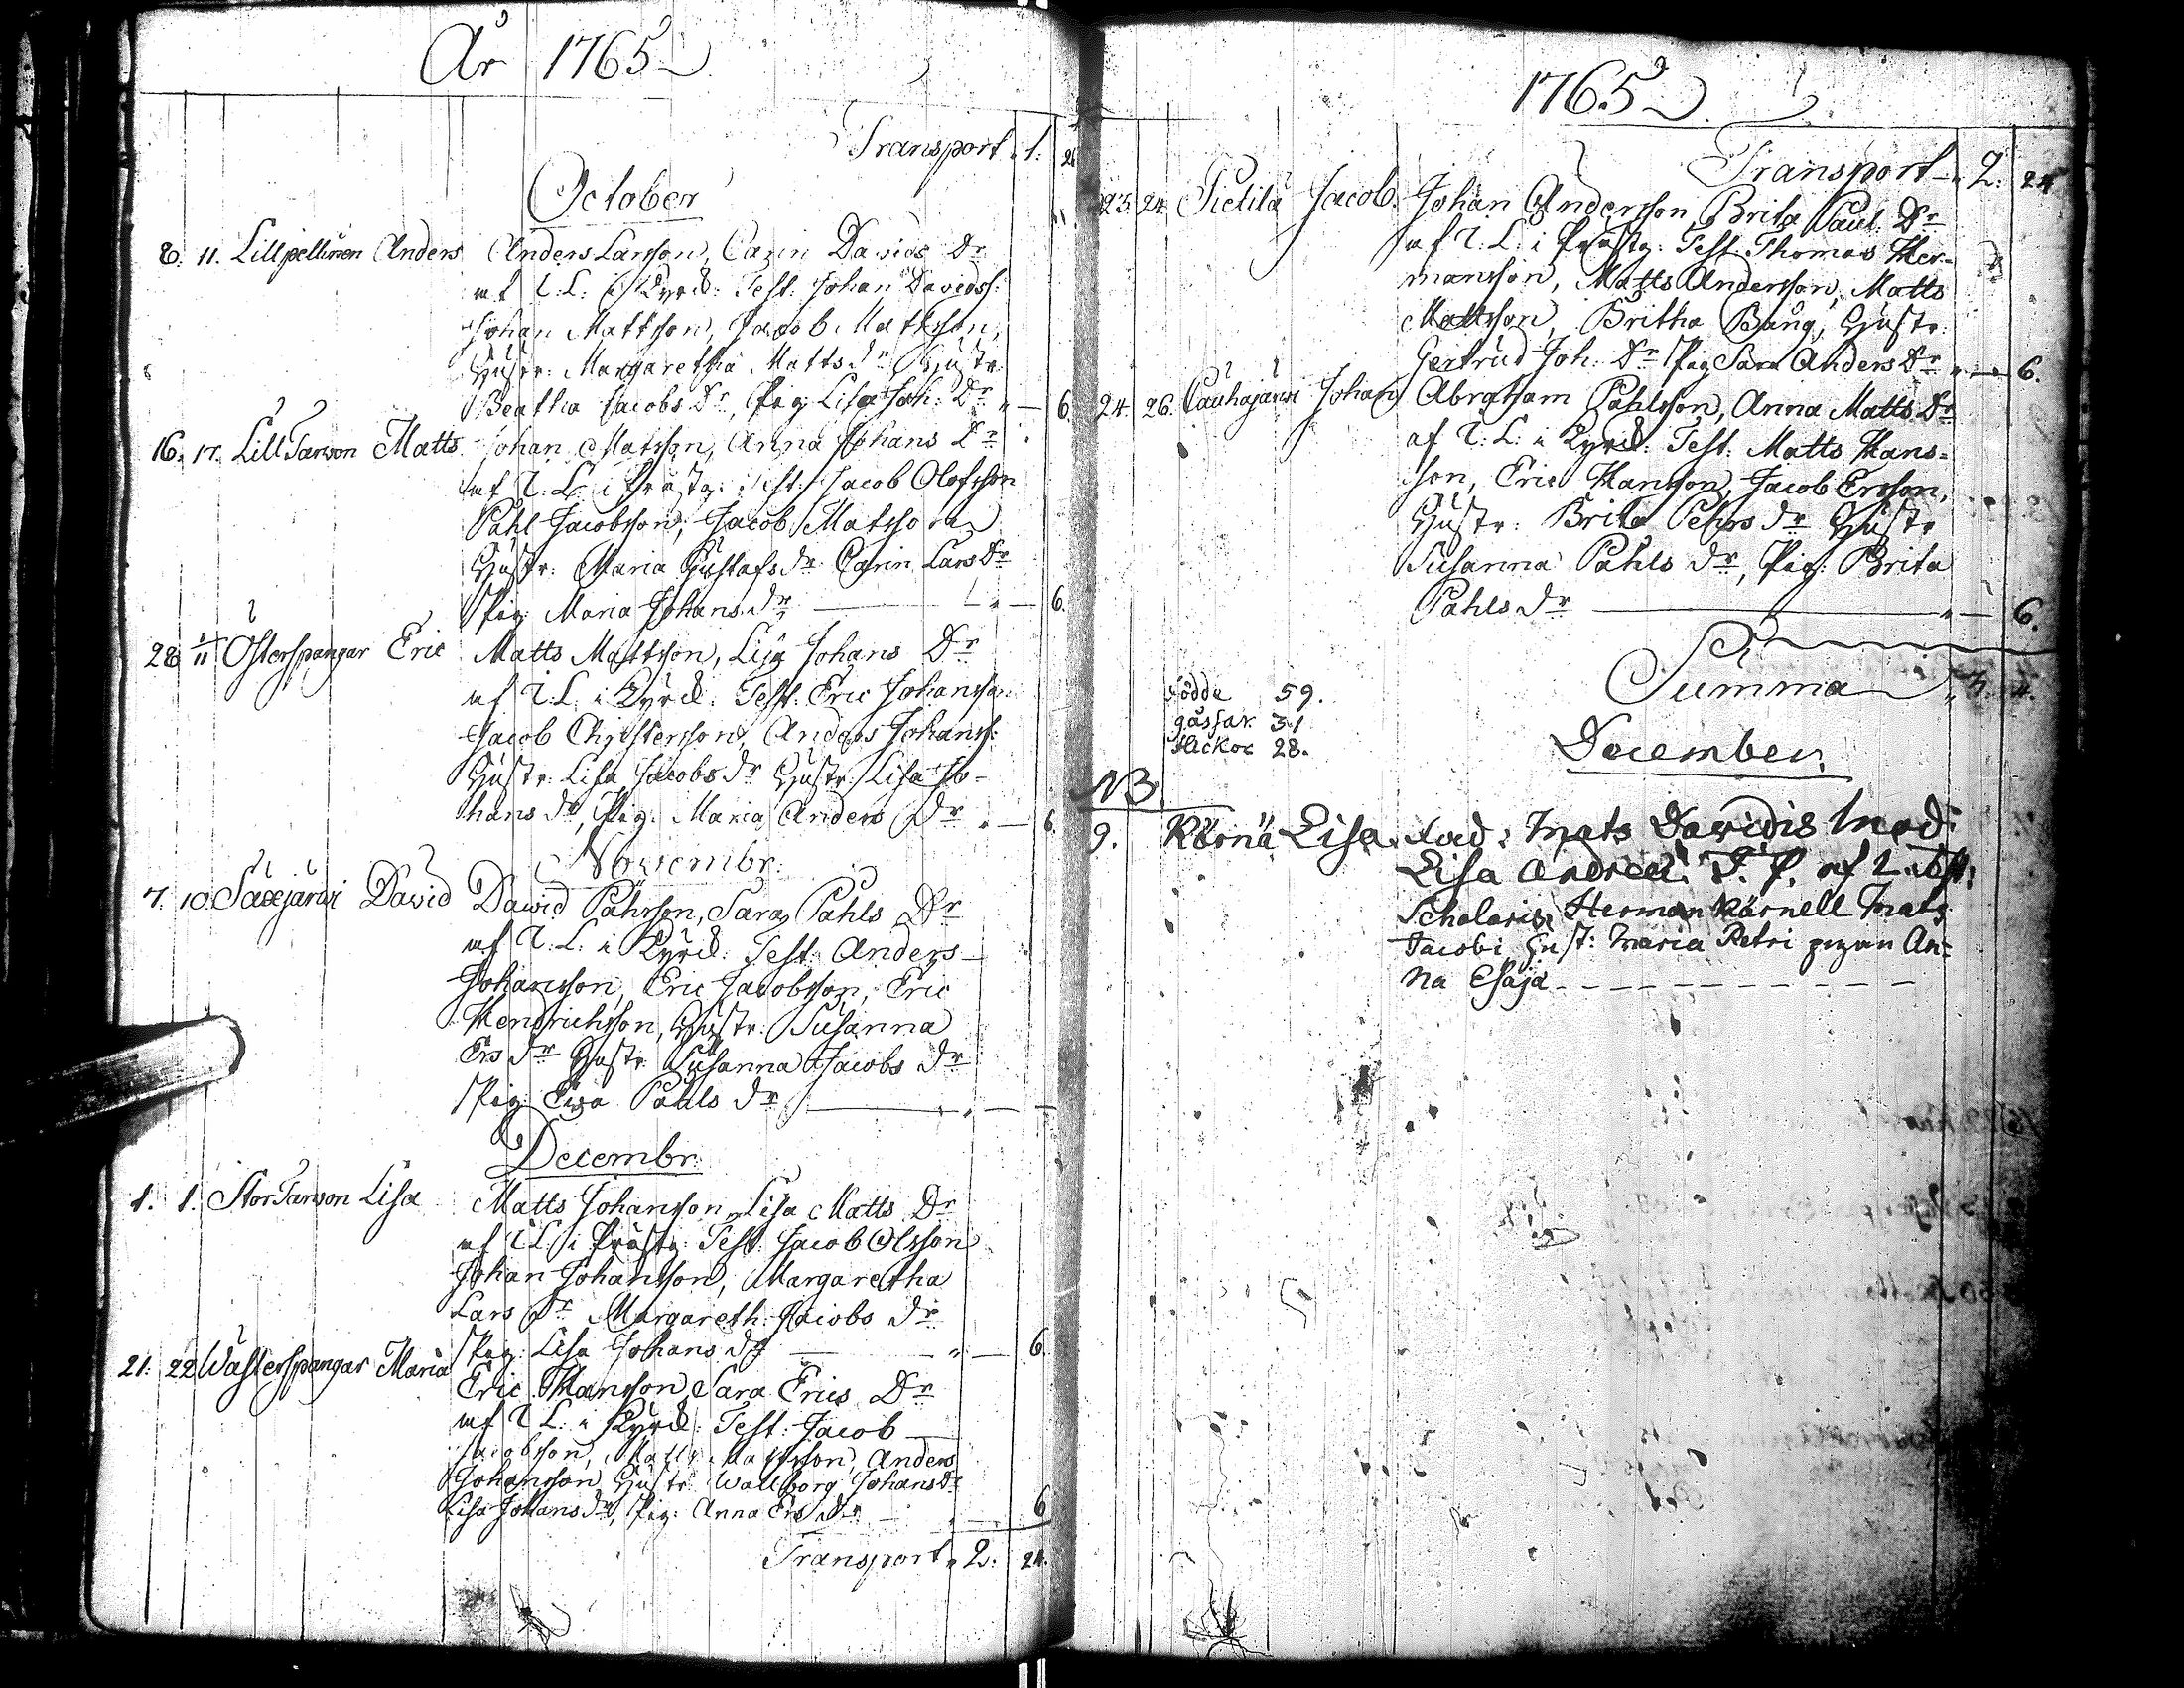 År 1765
Transport 1. 26
October
8. 11. Lillpellinen Anders Anders Larsson, Carin Davids Dr
af I: L: i Kyrck: Test: Johan Davidss:
Johan Mattsson, Jacob Mattsson,
Hustr: Margaretha Matts dr Hustr
Beatha Jacobs Dr, Pig: Lisa Joh: Dr " — 6.
16. 17. Lill Tarvon Matts Johan Matsson, Anna Johans Dr
af I: L: i Prästg: Test: Jacob Olofsson
Påhl Jacobsson, Jacob Matsson
Hustr: Maria Gustafs dr Carin Lars Dr
Pig: Maria Johans dr " — 6.
28 1/11 Österspangar Eric Matts Mattsson, Lisa Johans Dr
af I: L: i Kyrck: Test: Eric Johansson
Jacob Christersson, Anders Johanss:
Hustr: Lisa Jacobs dr Hustr: Lisa Jo-
hans dr, Pig: Maria Anders Dr " — 6.
Novembr:
7. 10. Säxejärwi David David Påhrsson, Sara Påhls Dr
af I: L: i Kyrck: Test: Anders
Johansson, Eric Jacobsson, Eric
Hendrichsson, Hustr: Susanna
Ers dr Hustr Susanna Jacobs dr
Pig: Ewa Påhls dr " —
Decembr:
1. 1. Stor Tarvon Lisa Matts Johansson, Lisa Matts Dr
af I: L: i Prästg: Test: Jacob Olsson
Johan Johansson, Margaretha
Lars Dr Margareth: Jacobs dr
Pig: Lisa Johans dr " — 6.
21. 22 Wästerspangar Maria Eric Hansson, Sara Erics Dr
af I: L: i Kyrck: Test: Jacob
Jacobsson, Matts Mattsson, Anders
Johansson Hustr Wallborg Johans dr
Lisa Johans dr, Pig: Anna Ers dr 6
Transport " 2. 24.
1765
Transport " 2. 24
23. 24. Jacob. Johan Andersson Brita Paul: Dr
af I: L: i Prästg: Test Thomas Her-
mansson, Matts Andersson, Matts
Mattsson, Britha Bång, Hustr:
Gertrud Joh: Dr Pig Sara Anders Dr " — 6.
24. 26. Cauhajärwi Johan Abraham Påhlsson, Anna Matts Dr
af I: L: i Kyrck: Test: Matts Hans-
son, Eric Hansson, Jacob Ersson,
Hustr: Brita Pehrs dr Hustr
Susanna Påhls dr, Pig: Brita
Påhls dr " — 6.
Summa " 3. 4.
födde 59.
gåssar 31
flickor 28.
December.
NB
9. Körnä Lisa. Fad: Mats Davidis Mod:
Lisa Andreæ. T. P. af
Scholaris, Herman Körnell Mats
Jacobi Hust: Maria Petri pigan An-
na Esaja